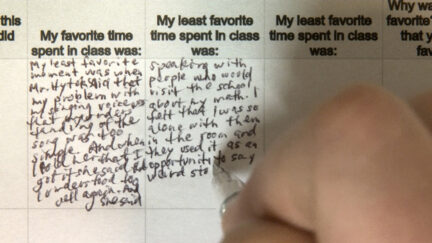 this
did
My favorite time
spent in class
was:
My least favorite
time spent in class
was:
My least favorite
time spent in
class was:
Why wa
favorite?
that y
fav
My least favorite
moment was when
said that
my problem with
voice was
that
tending to the
song
And when
I told her that I
got it she said
I understood to
yell again. And
she said
speaking with
people who would
visit the school
about my math. I
felt that I was so
alone with them
in the room and
they used it as an
opportunity to say
weird sto